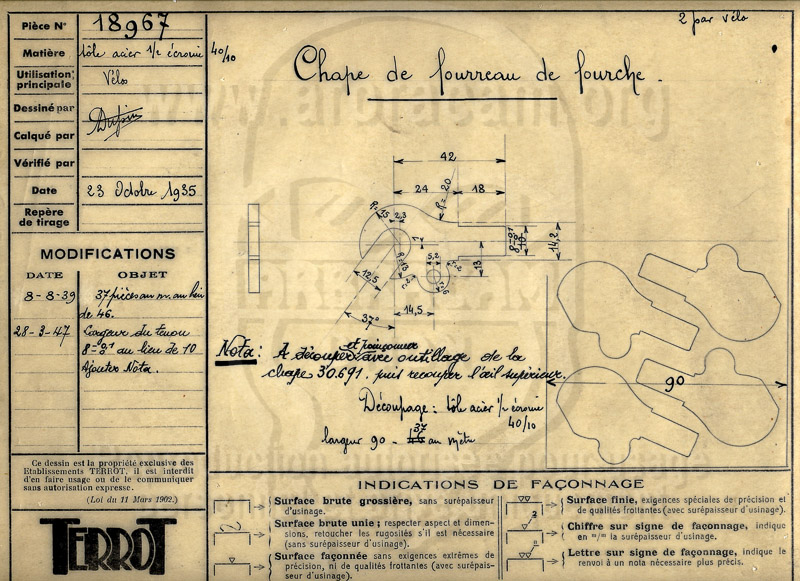 Pièce N° 18967
Matière tôle acier 1/2 écrouie 40/10
Utilisation principale Vélos
Dessiné par
Calqué par
Vérifié par
Date 23 Octobre 1935
Repère de tirage
MODIFICATIONS
DATE OBJET
8-8-39 37 pièces au m. au lieu
de 46.
28-3-47 Largeur du tenon
8-0,1 au lieu de 10
Ajouter Nota.
Ce dessin est la propriété exclusive des
Etablissements TERROT, il est interdit
d'en faire usage ou de le communiquer
sans autorisation expresse.
(Loi du 11 Mars 1902.)
TERROT
2 par vélo
Chape de fourreau de fourche.
42
24 18
R=20
R=15 2,3
1
R=13
12,5
37°
14,5
5,2
r=2
r=6
13
14,2
Nota: A découper et poinçonner avec outillage de la
chape 30.691. puis recouper l'œil supérieur.
Découpage: tôle acier 1/2 écrouie
40/10
largeur 90 - 37 au mètre
90
INDICATIONS DE FAÇONNAGE
Surface brute grossière, sans surépaisseur
d'usinage.
Surface brute unie; respecter aspect et dimen-
sions, retoucher les rugosités s'il est nécessaire
(sans surépaisseur d'usinage).
Surface façonnée sans exigences extrêmes de
précision, ni de qualités frottantes (avec surépais-
seur d'usinage).
Surface finie, exigences spéciales de précision et
de qualités frottantes (avec surépaisseur d'usinage).
Chiffre sur signe de façonnage, indique
en m/m la surépaisseur d'usinage.
Lettre sur signe de façonnage, indique le
renvoi à un nota nécessaire plus précis.